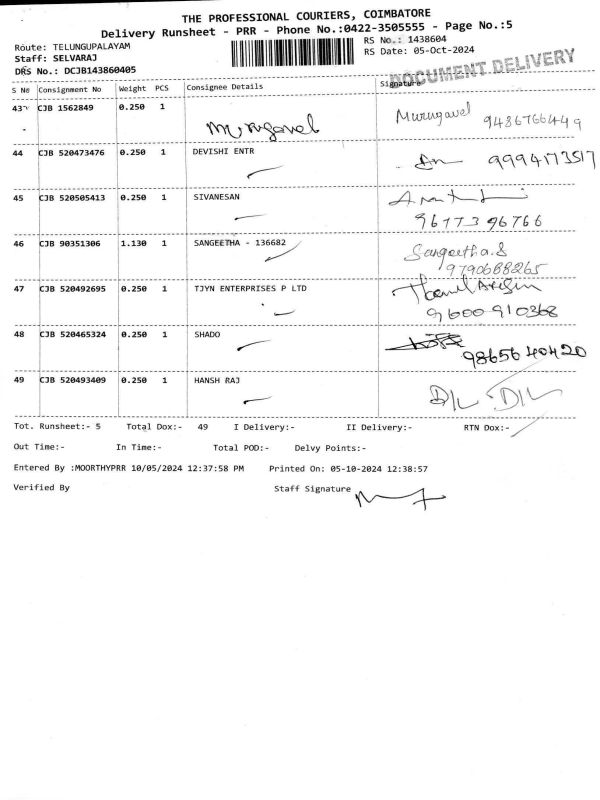 THE PROFESSIONAL COURIERS, COIMBATORE
Delivery Runsheet - PRR - Phone No.:0422-3505555 - Page No.:5
Route: TELUNGUPALAYAM
RS No.: 1438604
Staff: SELVARAJ
RS Date: 05-Oct-2024
DRS No.: DCJB143860405
DOCUMENT DELIVERY
S No Consignment No Weight PCS Consignee Details Signature
43 CJB 1562849 0.250 1 Murugavel Murugavel 9486766449
44 CJB 520473476 0.250 1 DEVISHI ENTR 9994173517
45 CJB 520505413 0.250 1 SIVANESAN
9677396766
46 CJB 90351306 1.130 1 SANGEETHA - 136682 Sangeetha.S
9790688265
47 CJB 520492695 0.250 1 TJYN ENTERPRISES P LTD
9600910368
48 CJB 520465324 0.250 1 SHADO
9865640420
49 CJB 520493409 0.250 1 HANSH RAJ D/L - D/L
Tot. Runsheet:- 5 Total Dox:- 49 I Delivery:- II Delivery:- RTN Dox:-
Out Time:- In Time:- Total POD:- Delvy Points:-
Entered By :MOORTHYPRR 10/05/2024 12:37:58 PM Printed On: 05-10-2024 12:38:57
Verified By Staff Signature